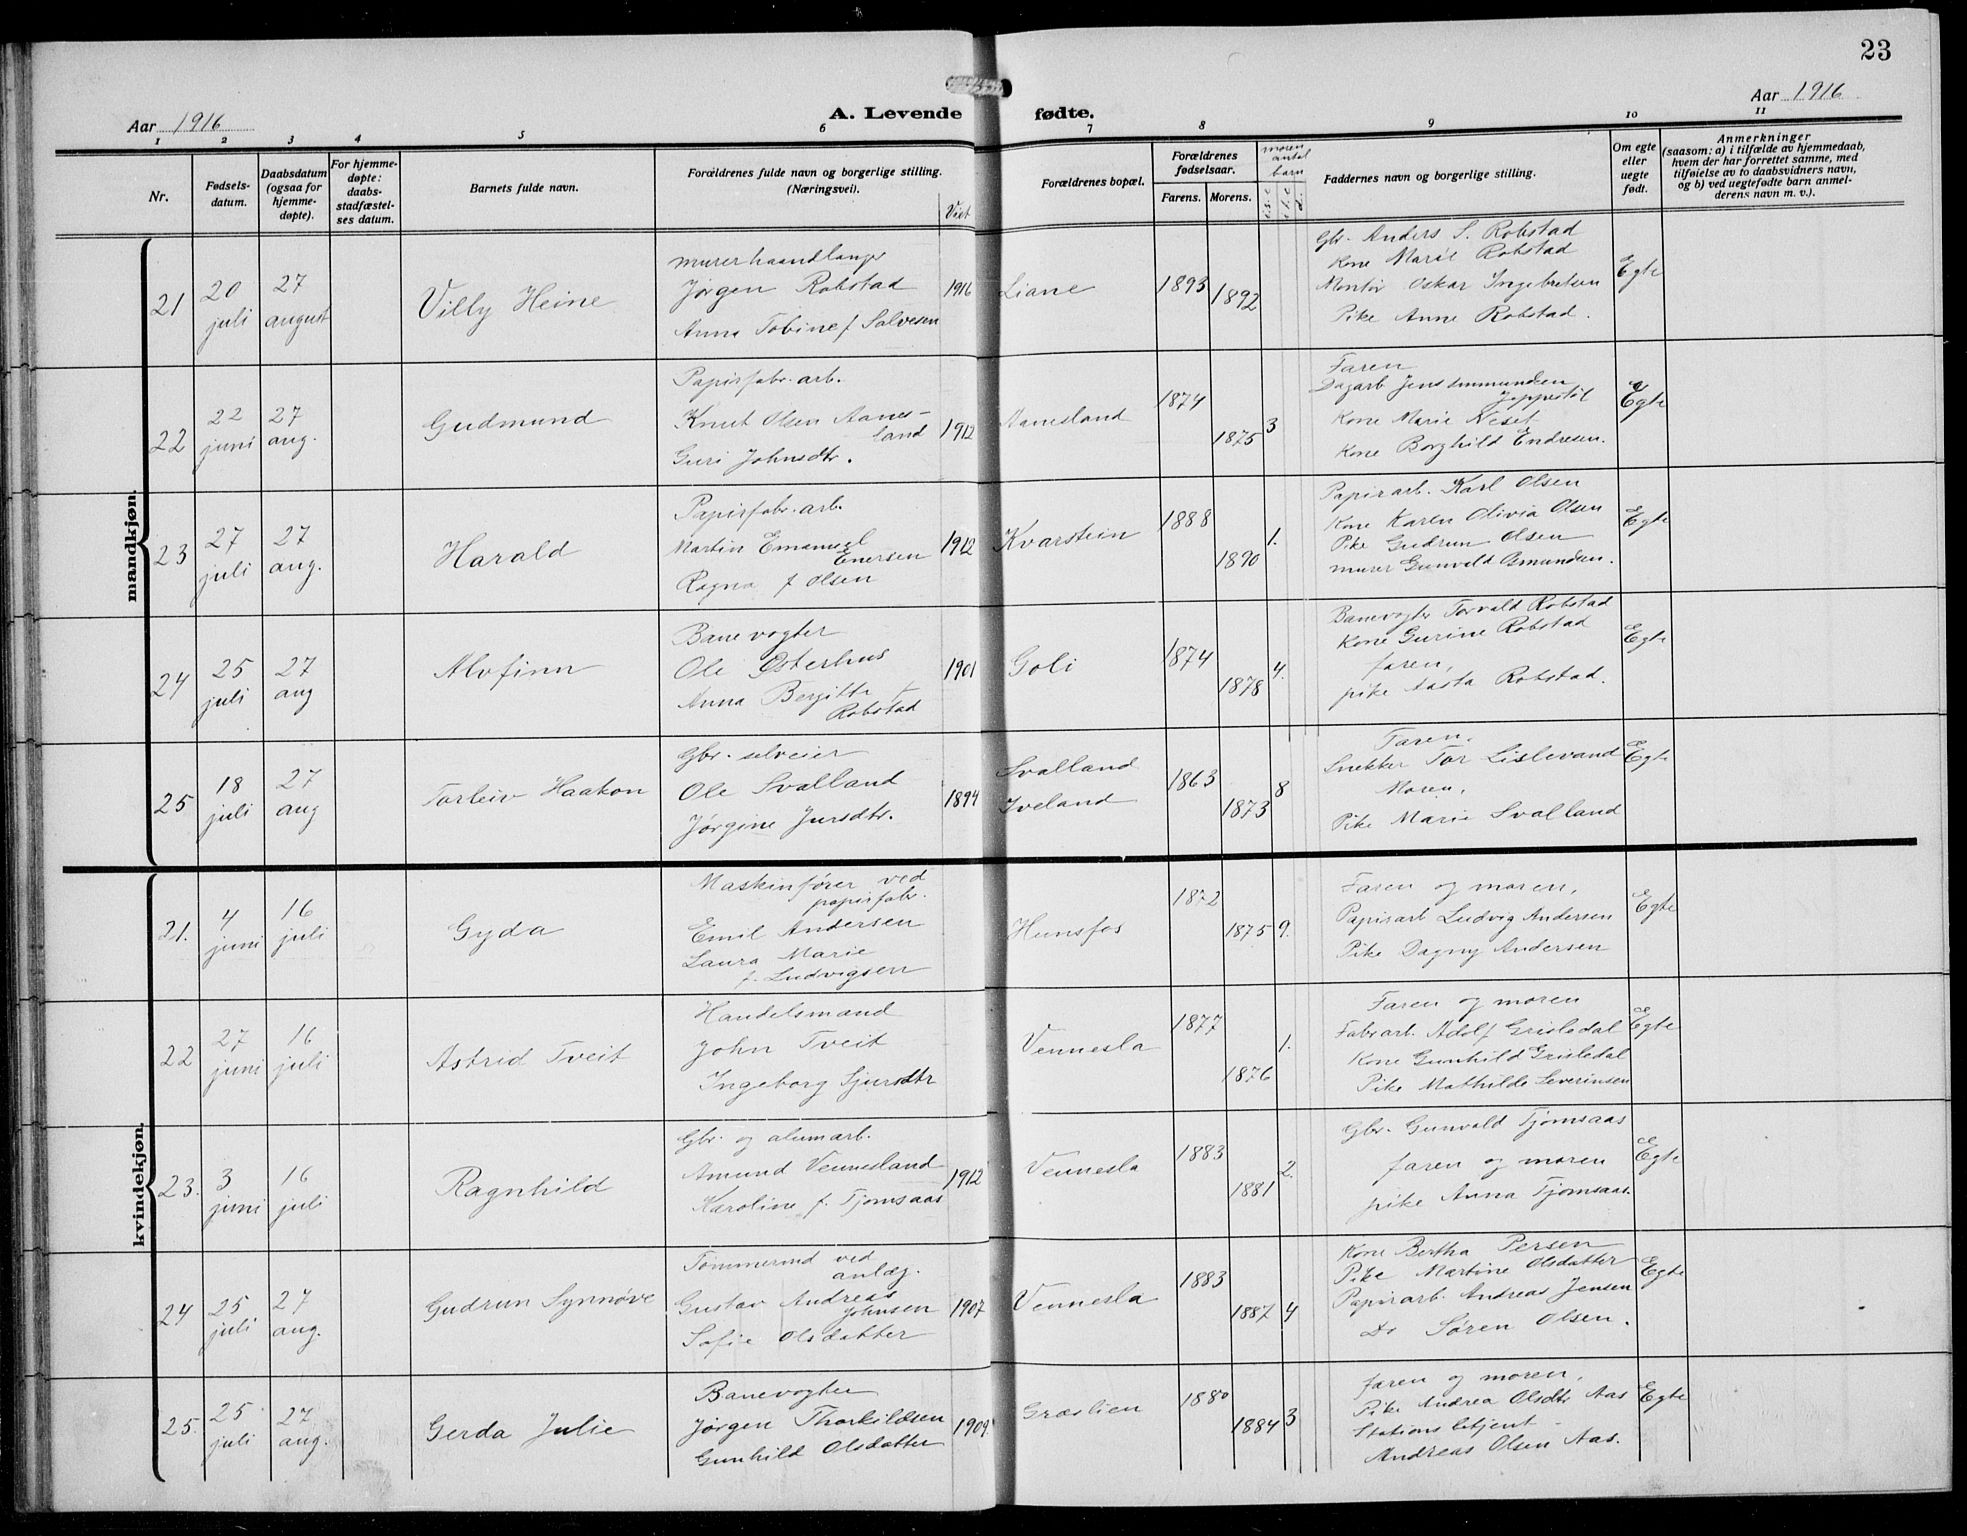 23
Aar 1916
A. Levende fødte.
Aar 1916
1 2 3 4 5 6 7 8 9 10 11
Nr.
Fødsels-
datum.
Daabsdatum
(ogsaa for
hjemme-
døpte).
For hjemme-
døpte:
daabs-
stadfæstel-
ses datum.
Barnets fulde navn.
Forældrenes fulde navn og borgerlige stilling.
(Næringsvei).
Viet
Forældrenes bopæl.
Forældrenes
fødselsaar.
Farens. Morens.
moren
antal
barn
Faddernes navn og borgerlige stilling.
Om egte
eller
uegte
født.
Anmerkninger
(saasom: a) i tilfælde av hjemmedaab,
hvem der har forrettet samme, med
tilføielse av to daabsvidners navn,
og b) ved uegtefødte barn anmel-
derens navn m. v.).
mandkjøn.
21 20 juli 27 august Villy Heine
murerhaandlanger
Jørgen Robstad
Anna Tobine f Salvesen
1916 Liane 1893 1892
Gbr. Anders S. Robstad
Kone Marie Robstad
Montør Oskar Ingebretsen
Pike Anne Robstad.
Egte
22 22 juni 27 aug. Gudmund
Papirfabr. arb.
Knut Olsen Aanes-
land
Guri Johnsdtr.
1912 Aanesland 1874 1875 3
Faren
Dagarb Jens Ommundsen
Jppestøl
Kone Marie Neset
Kone Borghild Endresen.
Egte
23 27 juli 27 aug. Harald
Papirfabr. arb.
Martin Emanuel
Enersen
Ragna f Olsen
1912 Kvarstein 1888 1890 1.
Papirarb. Karl Olsen
Kone Karen Olivia Olsen
Pike Gudrun Olsen
murer Gunvald Omundsen.
Egte
24 25 juli 27 aug Alvfinn
Banevogter
Ole Østerhus
Anna Bergitte f
Robstad
1901 Goli 1874 1878 4.
Banevogter Torvald Robstad
Kone Gurine Robstad
faren,
pike Aasta Robstad.
Egte
25 18 juli 27 aug Torleiv Haakon
Gbr. selveier
Ole Svalland
Jørgine Jursdtr.
1894
Svalland
Iveland
1863 1873 8
Faren,
Snekker Tor Lislevand
Moren,
Pike Marie Svalland
Egte
kvindekjøn.
21. 4 juni 16 juli Gyda
Maskinfører ved
papirfabr.
Emil Andersen
Laura Marie
f. Ludvigsen
Hunsfos 1872 1875 9.
Faren og moren,
Papirarb Ludvig Andersen
Pike Dagny Andersen
Egte
22 27 juni 16 juli Astrid Tveit
Handelsmand
John Tveit
Ingeborg Sjursdtr
Vennesla 1877 1876 1.
Faren og moren
Fabrarb. Adolf Grisledal
Kone Gunhild Grisledal
Pike Mathilde Severinsen
Egte
23. 3 juni 16 juli Ragnhild
Gbr. og alumarb.
Amund Vennesland
Karoline f. Tjomsaas
1912 Vennesla 1883 1881 2.
Gbr. Gunvald Tjomsaas
faren og moren
pike Anna Tjomsaas.
Egte
24 25 juli 27 aug. Gudrun Synnøve
Tømmermd ved
anlæg.
Gustav Andreas
Johnsen
Sofie Olsdatter
1907 Vennesla 1883 1887 4
Kone Bertha Persen
Pike Martine Olsdatter
Papirarb. Andreas Jensen
Do Søren Olsen.
Egte
25. 25 juli 27 aug. Gerda Julie
Banevogter
Jørgen Thorkildsen
Gunhild Olsdatter
1909 Græslien 1880 1884 3
faren og moren,
Pike Andrea Olsdtr Aas
Stationsbetjent
Andreas Olsen Aas.
Egte